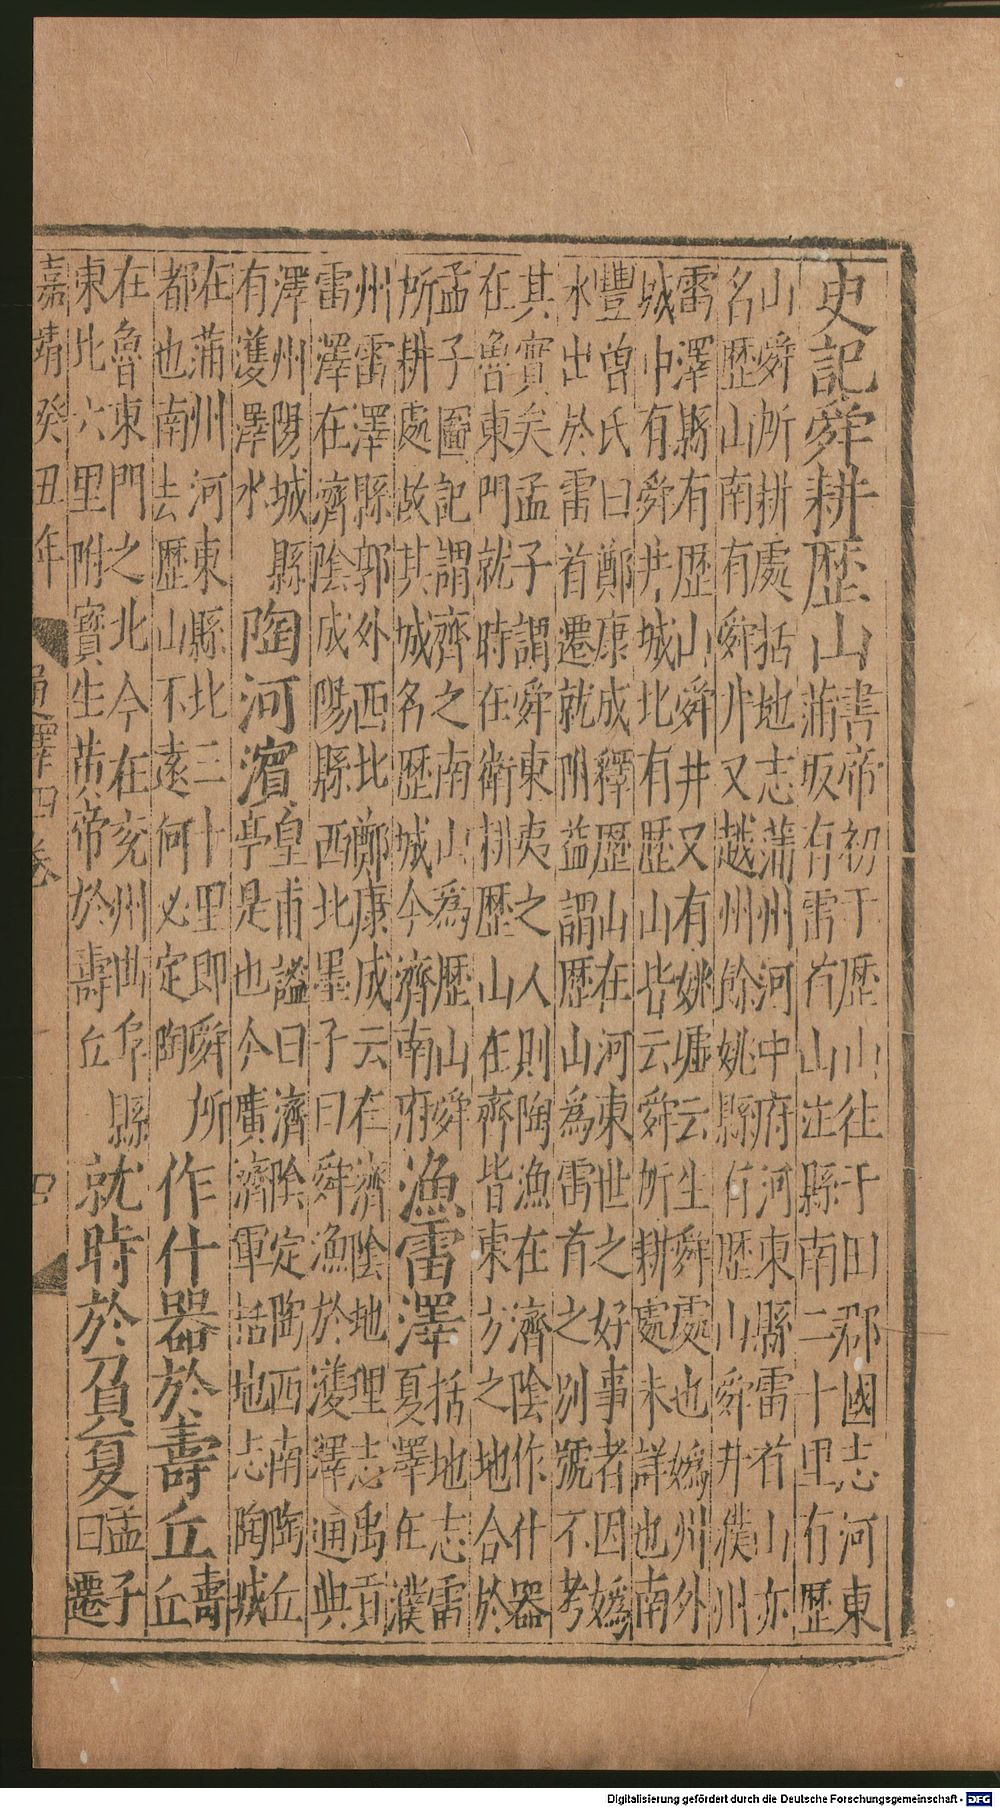 史記舜耕歷山書帝初于歷山往于田郡國志河東
蒲坂有雷首山㳂縣南二十里有歷
山舜所耕處括地志蒲州河中府河東縣雷首山亦
名歷山南有舜井又越州餘姚縣有歷山舜井濮州
雷澤縣有歷山舜井又有姚墟云生舜處也嬀州外
城中有舜井城北有歷山皆云舜所耕處未詳也南
豐曾氏曰鄭康成釋歷山在河東世之好事者因嬀
水出於雷首遷就附益謂歷山為雷首之別號不考
其實矣孟子謂舜東夷之人則陶漁在濟陰作什器
在魯東門就時在衛耕歷山在齊皆東方之地合於
孟子圖記謂齊之南山為歷山舜
所耕處故其城名歷城今濟南府漁雷澤括地志雷
夏澤在濮
州雷澤縣郭外西北鄭康成云在濟陰地理志禹貢
雷澤在濟陰成陽縣西北墨子曰舜漁於濩澤通典
澤州陽城縣
有濩澤水陶河濱皇甫謐曰濟陰定陶西南陶丘
亭是也今廣濟軍括地志陶城
在蒲州河東縣北三十里即舜所
都也南去歷山不遠何必定陶作什器於壽丘壽
丘
在魯東門之北今在兖州曲阜縣
東北六里附寶生黄帝於壽丘就時於負夏孟子
曰遷
嘉靖癸丑年
通釋四卷
四
Digitalisierung gefördert durch die Deutsche Forschungsgemeinschaft - DFG